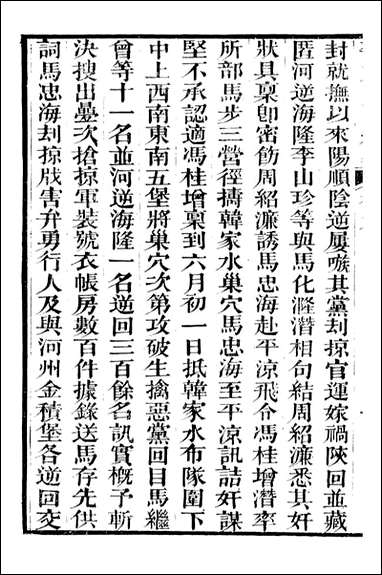 封就撫以來陽順陰逆屢嗾其黨刦掠官運嫁禍陝回並藏
匿河逆海隆李山珍等與馬化漋潛相句結周紹濂悉其奸
狀具稟卽密飭周紹濂誘馬忠海赴平涼飛令馮桂增潛率
所部馬步三營徑擣韓家水巢穴馬忠海至平涼訊詰奸謀
堅不承認適馮桂增稟到六月初一日抵韓家水布隊圍下
中上西南東南五堡將巢穴次第攻破生擒惡黨回目馬繼
曾等十一名並河逆海隆一名逆回三百餘名訊實槪予斬
決搜出曡次搶掠軍裝號衣帳房數百件據錄送馬存先供
詞馬忠海刦掠戕害弁勇行人及與河州金積堡各逆回交